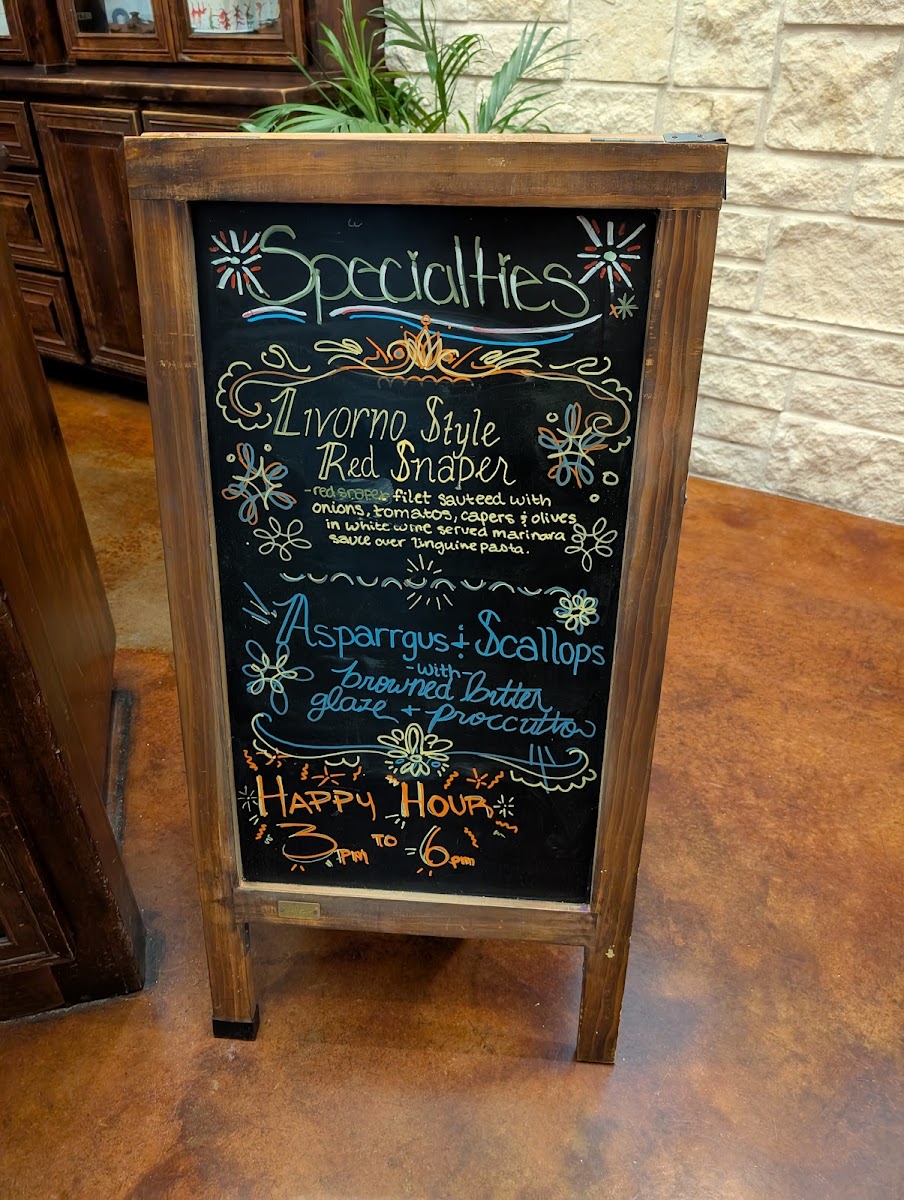 Specialties
Livorno Style
Red Snaper
-red snaper filet sauteed with
onions, tomatos, capers & olives
in white wine served marinara
sauce over linguine pasta.
Asparrgus & Scallops
-with-
browned butter
glaze + proccutto
Happy Hour
3pm to 6pm